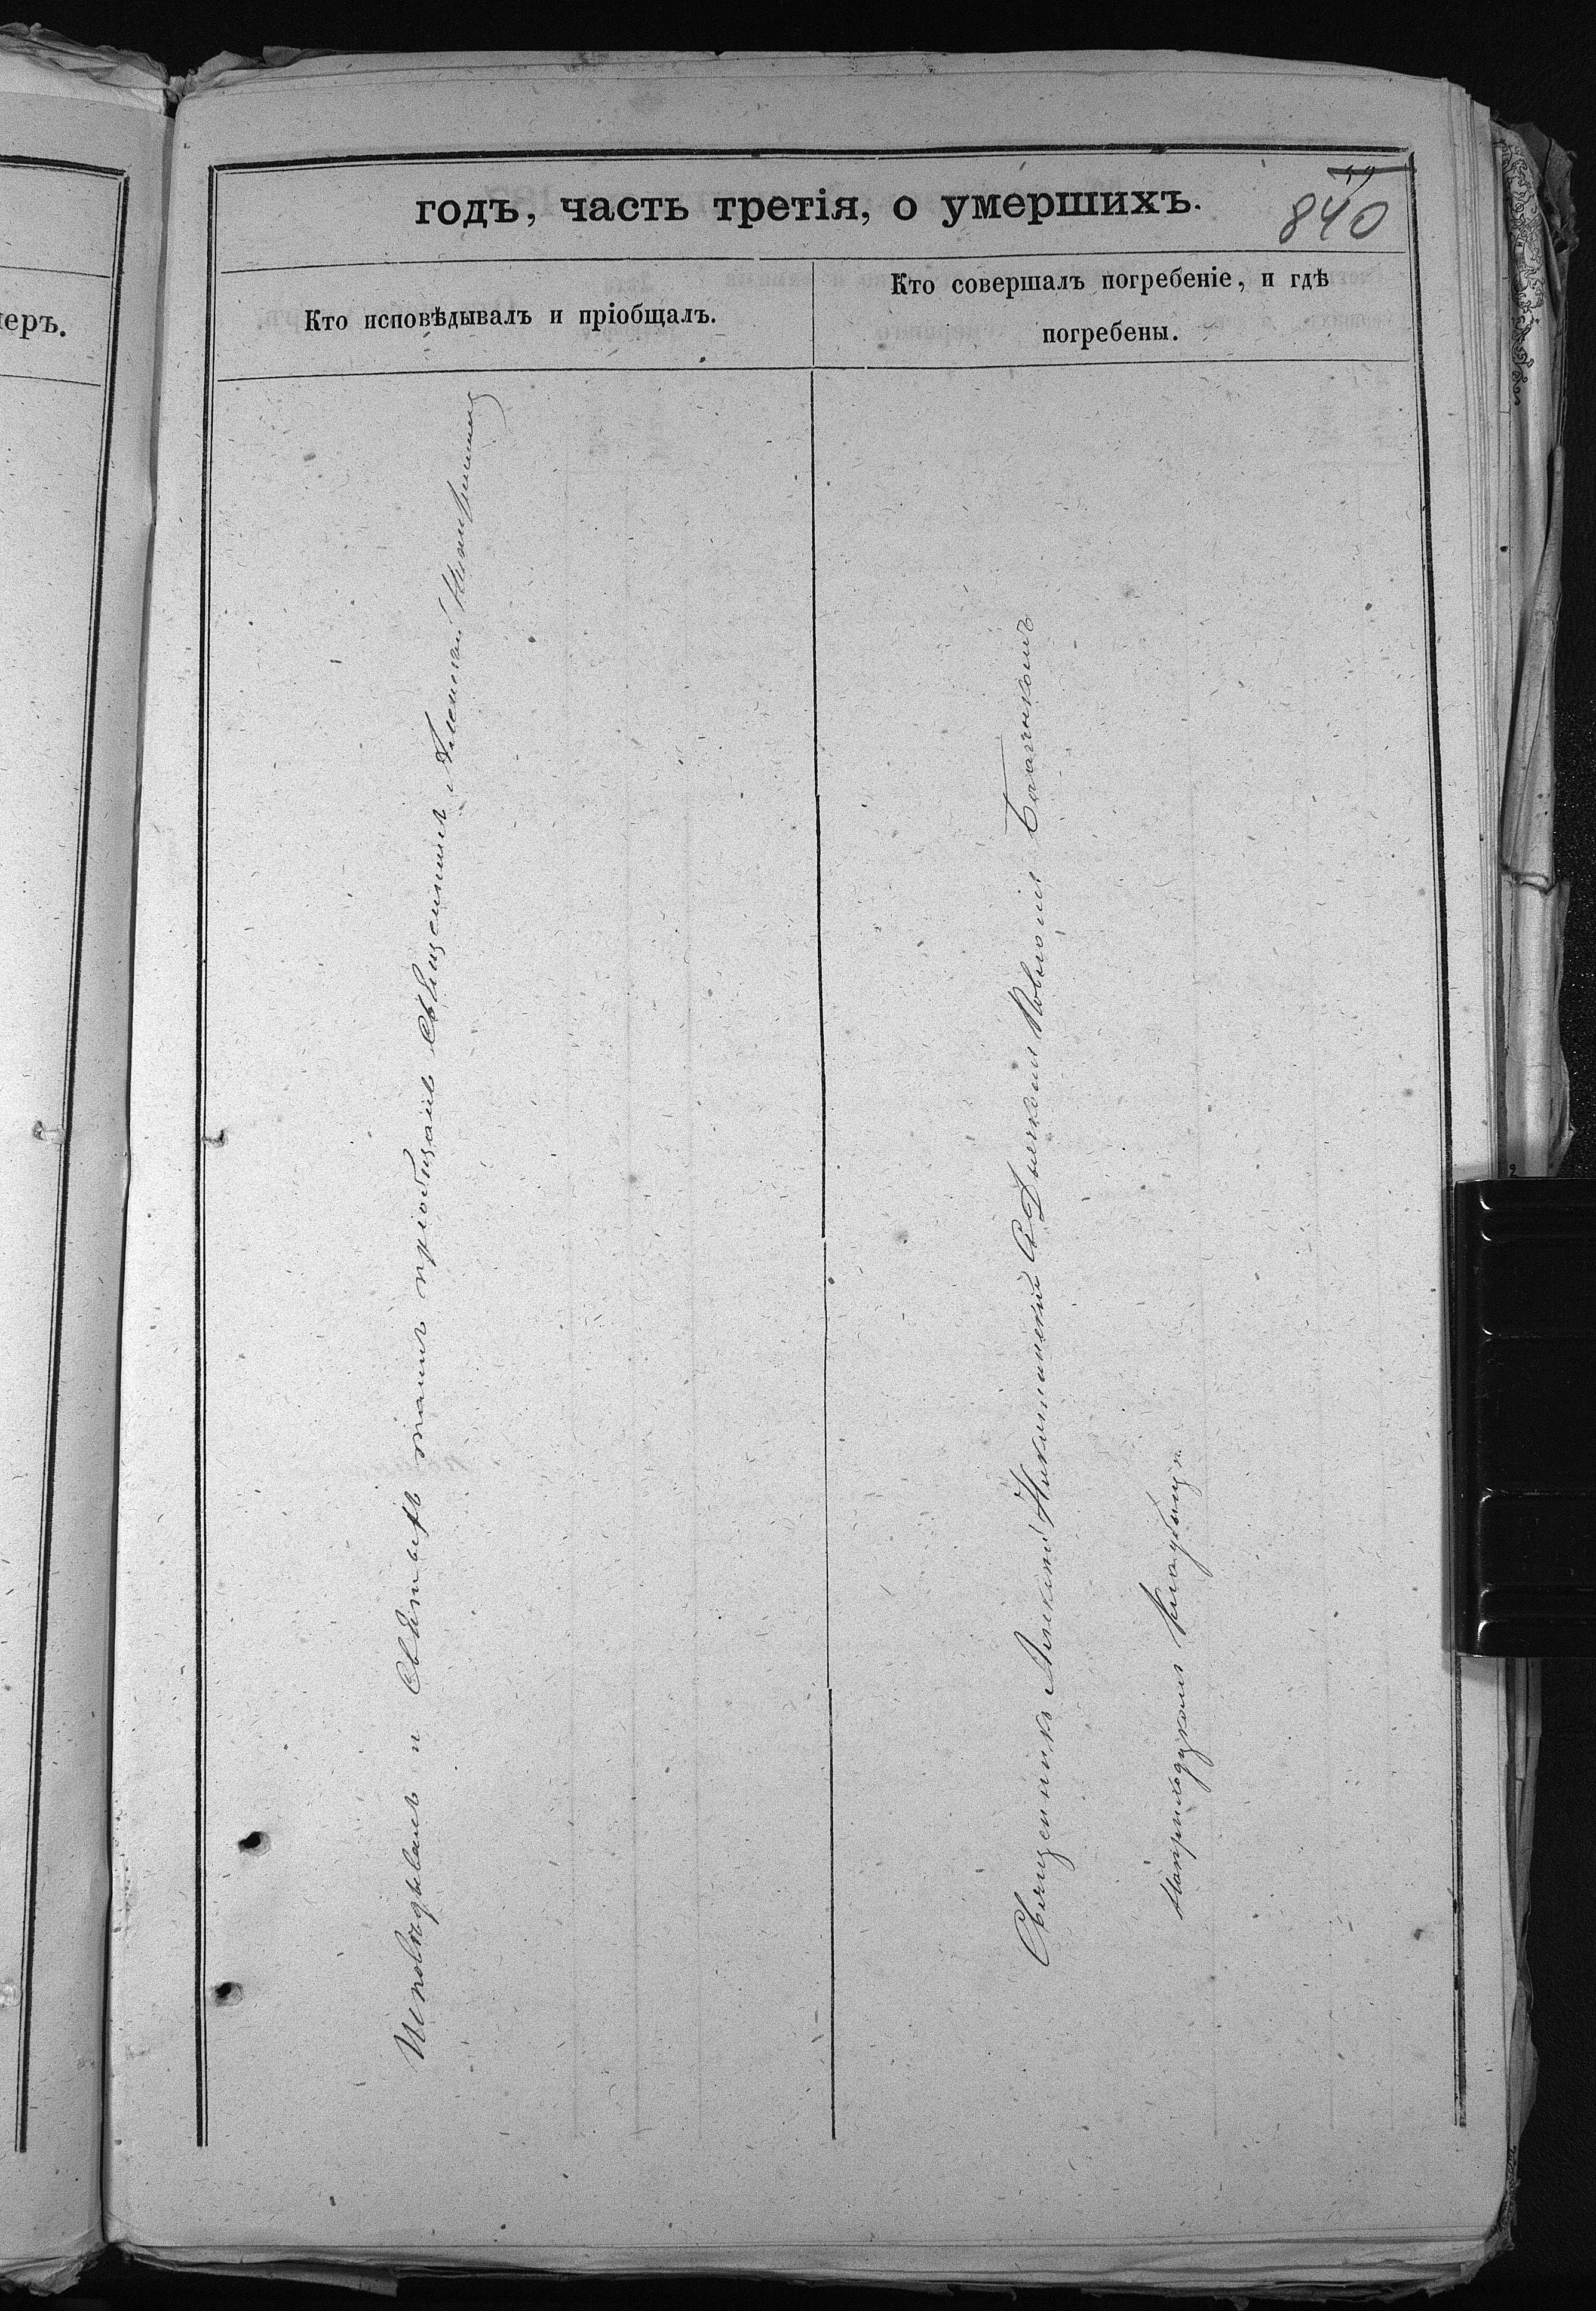 меръ.
годъ, часть третія, о умершихъ.
840
Кто исповѣдывалъ и пріобщалъ.
Кто совершалъ погребеніе, и гдѣ
погребены.
Исповѣдывалъ и Святыхъ таинъ пріобщалъ Священникъ Алексій
Священникъ Алексій съ Дьячкомъ
Наприходскомъ Кладбищѣ